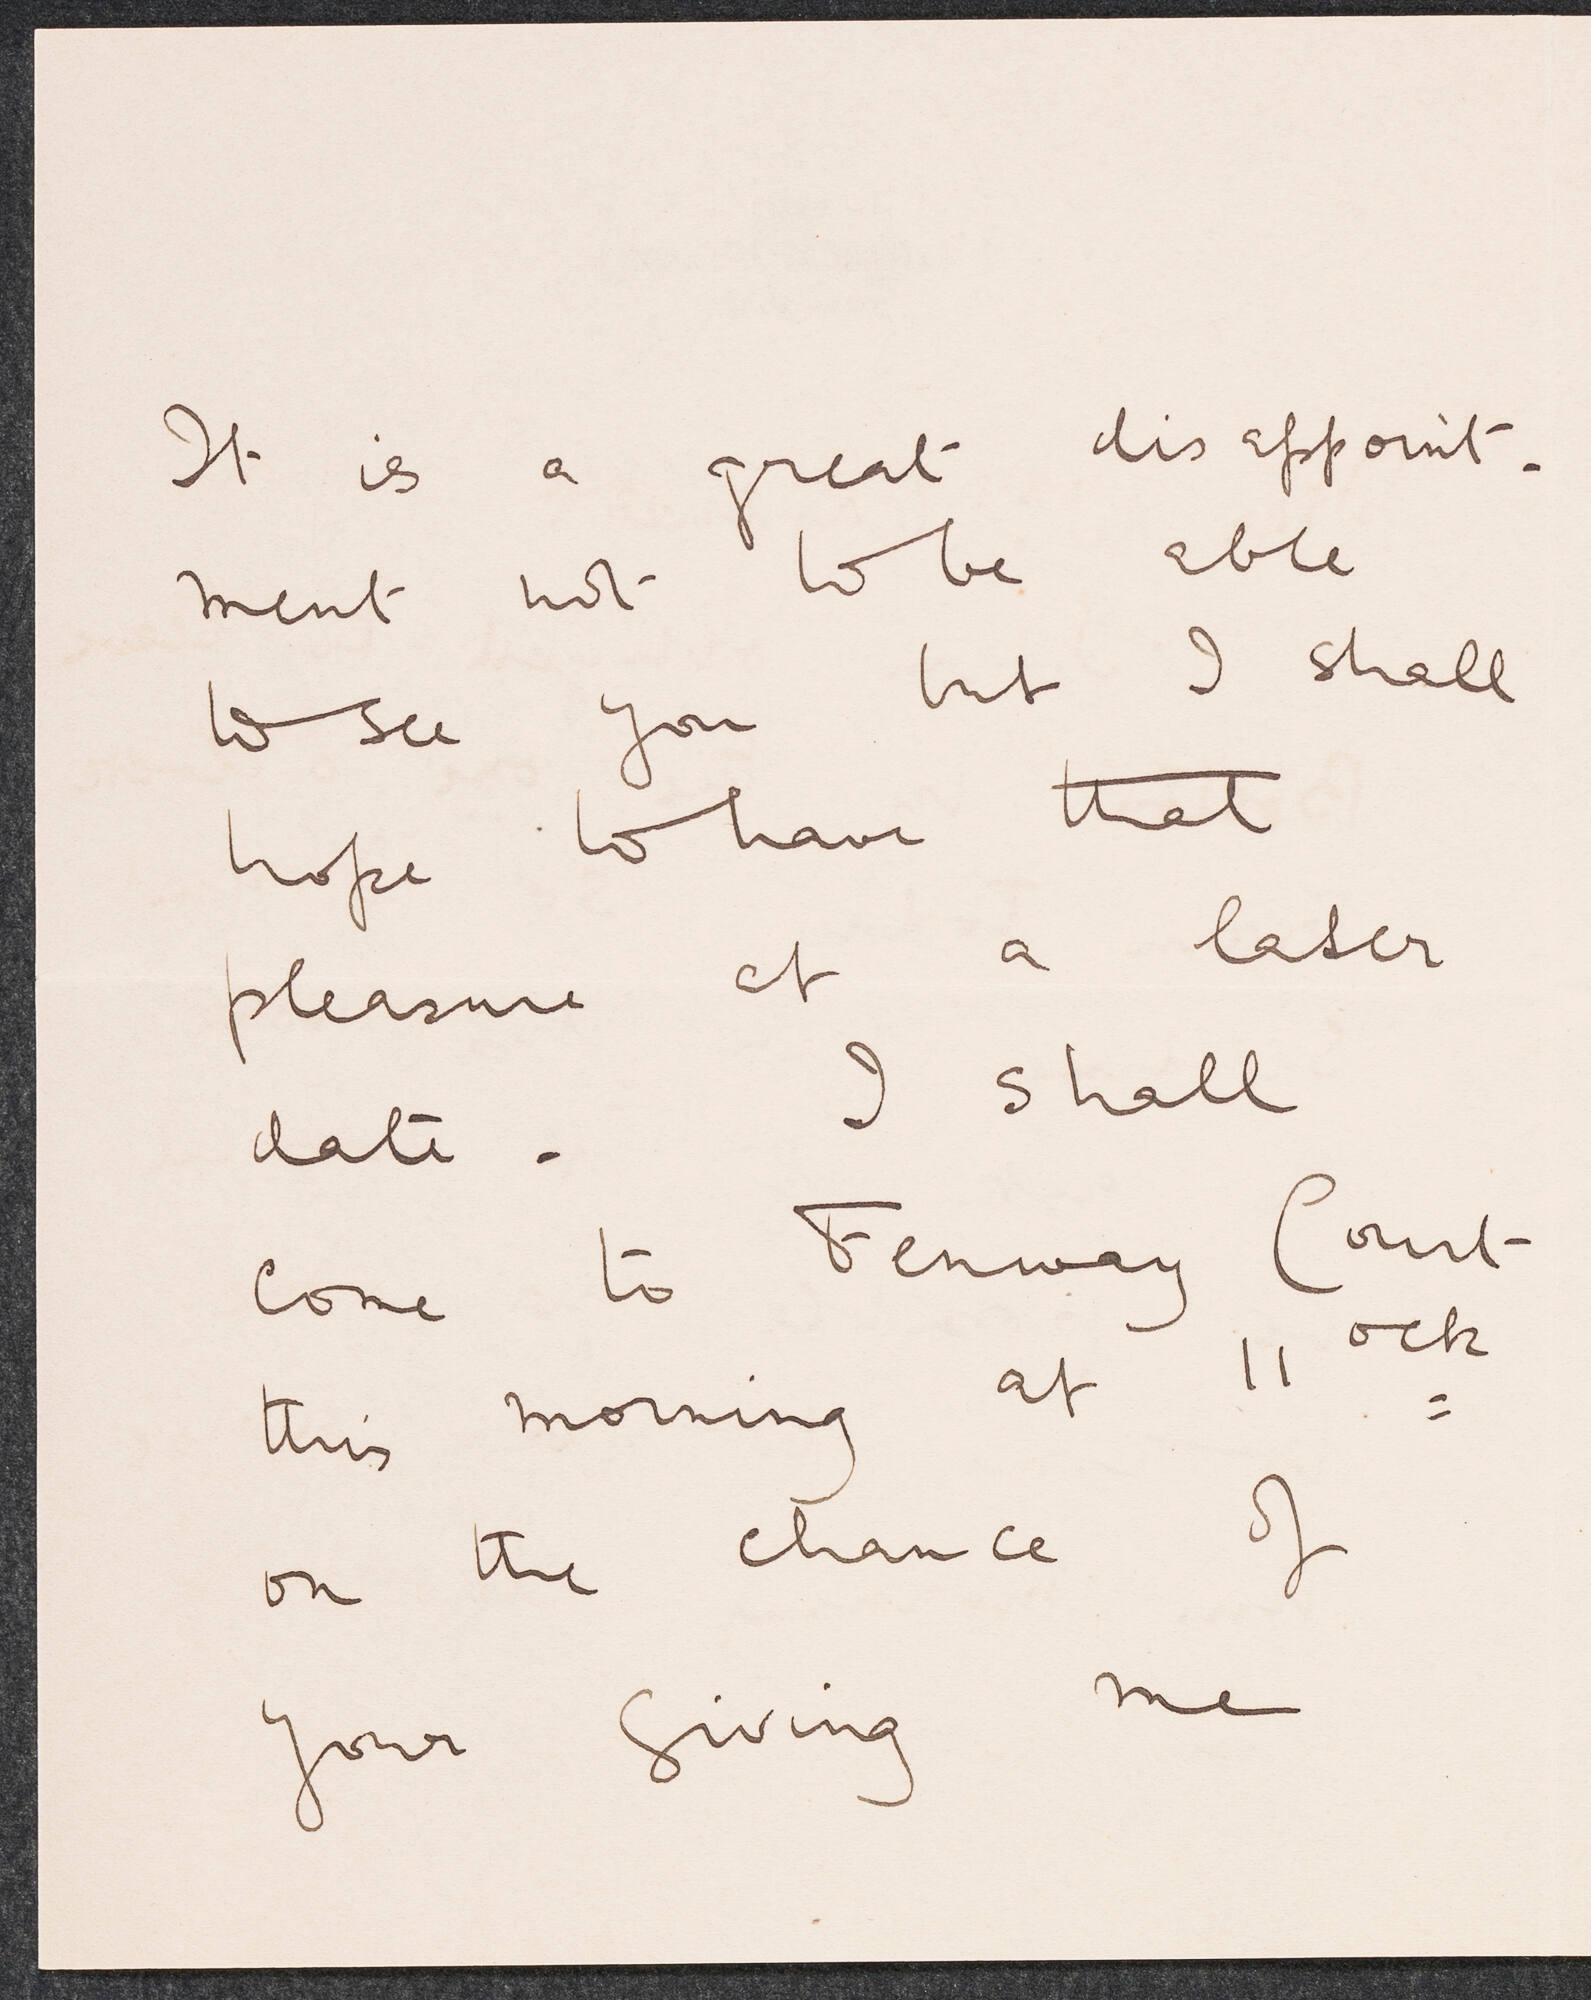 It is a great disappoint-
ment not to be able
to see you but I shall
hope to have that
pleasure at a later
date. I shall
come to Fenway Court
this morning at 11 ock
on the chance of
your giving me